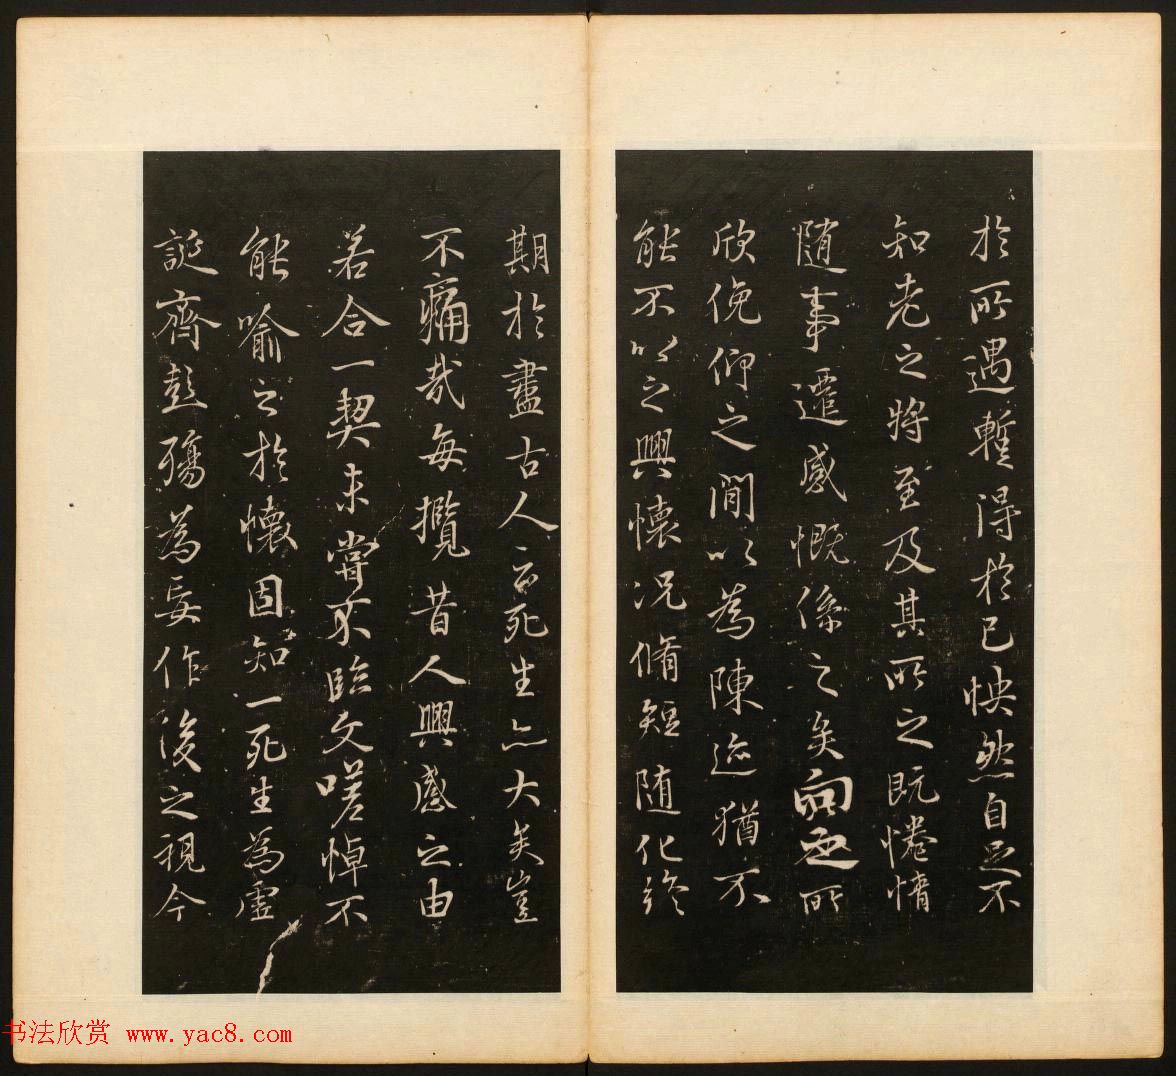 於所遇暫得於己怏然自足不
知老之將至及其所之既惓情
隨事遷感慨係之矣向之所
欣俛仰之間以為陳迹猶不
能不以之興懷況脩短隨化終
期於盡古人云死生亦大矣豈
不痛哉每攬昔人興感之由
若合一契未嘗不臨文嗟悼不
能喻之於懷固知一死生為虛
誕齊彭殤為妄作後之視今
书法欣赏 www.yac8.com